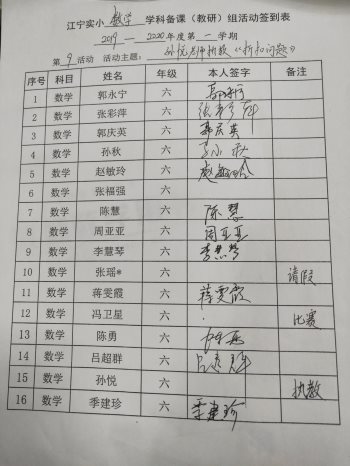 江宁实小 数学 学科备课（教研）组活动签到表
2019 — 2020年度第一学期
第 9 活动 活动主题： 孙悦老师执教《折扣问题》
序号 科目 姓名 年级 本人签字 备注
1 数学 郭永宁 六
2 数学 张彩萍 六 张彩萍
3 数学 郭庆英 六 郭庆英
4 数学 孙秋 六 孙秋
5 数学 赵敏玲 六 赵敏玲
6 数学 张福强 六
7 数学 陈慧 六 陈慧
8 数学 周亚亚 六 周亚亚
9 数学 李慧琴 六 李慧琴
10 数学 张瑶* 六 请假
11 数学 蒋雯霞 六 蒋雯霞
12 数学 冯卫星 六 比赛
13 数学 陈勇 六
14 数学 吕超群 六
15 数学 孙悦 六 执教
16 数学 季建珍 六 季建珍